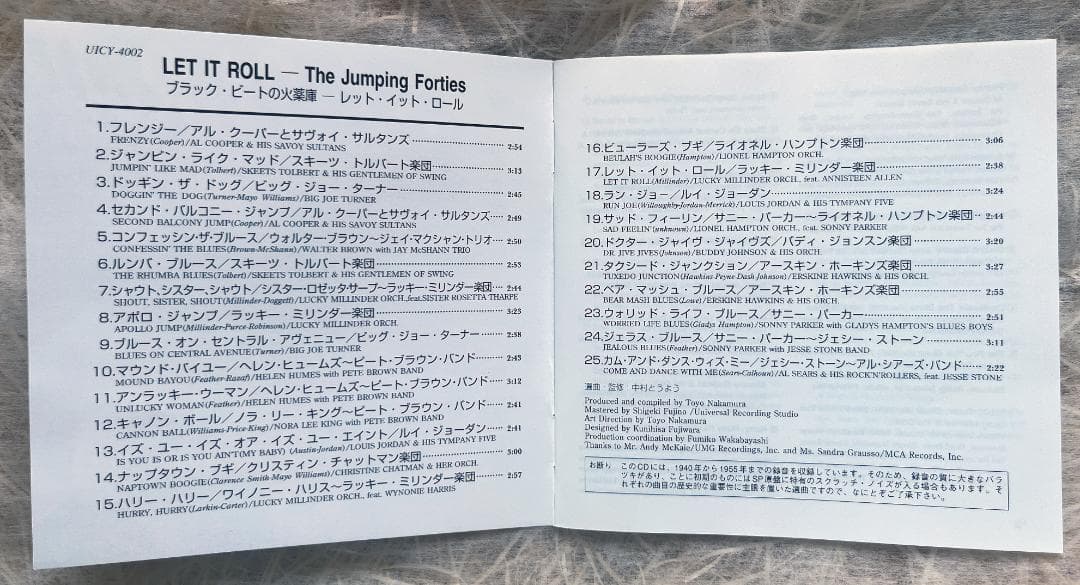 UICY-4002
LET IT ROLL — The Jumping Forties
ブラック・ビートの火薬庫 — レット・イット・ロール
1.フレンジー／アル・クーパーとサヴォイ・サルタンズ 2:54
FRENZY(Cooper)/AL COOPER & HIS SAVOY SULTANS
2.ジャンピン・ライク・マッド／スキーツ・トルバート楽団 3:13
JUMPIN' LIKE MAD(Tolbert)/SKEETS TOLBERT & HIS GENTLEMEN OF SWING
3.ドッギン・ザ・ドッグ／ビッグ・ジョー・ターナー 2:45
DOGGIN' THE DOG(Turner-Mayo Williams)/BIG JOE TURNER
4.セカンド・バルコニー・ジャンプ／アル・クーパーとサヴォイ・サルタンズ 2:49
SECOND BALCONY JUMP(Cooper)/AL COOPER & HIS SAVOY SULTANS
5.コンフェッシン・ザ・ブルース／ウォルター・ブラウン〜ジェイ・マクシャン・トリオ 2:50
CONFESSIN' THE BLUES(Brown-McShann)/WALTER BROWN with JAY McSHANN TRIO
6.ルンバ・ブルース／スキーツ・トルバート楽団 2:53
THE RHUMBA BLUES(Tolbert)/SKEETS TOLBERT & HIS GENTLEMEN OF SWING
7.シャウト、シスター、シャウト／シスター・ロゼッタ・サープ〜ラッキー・ミリンダー楽団 2:44
SHOUT, SISTER, SHOUT(Millinder-Doggett)/LUCKY MILLINDER ORCH.,feat.SISTER ROSETTA THARPE
8.アポロ・ジャンプ／ラッキー・ミリンダー楽団 3:23
APOLLO JUMP(Millinder-Purce-Robinson)/LUCKY MILLINDER ORCH.
9.ブルース・オン・セントラル・アヴェニュー／ビッグ・ジョー・ターナー 2:58
BLUES ON CENTRAL AVENUE(Turner)/BIG JOE TURNER
10.マウンド・バイユー／ヘレン・ヒュームズ〜ピート・ブラウン・バンド 2:43
MOUND BAYOU(Feather-Razaf)/HELEN HUMES with PETE BROWN BAND
11.アンラッキー・ウーマン／ヘレン・ヒュームズ〜ピート・ブラウン・バンド 3:12
UNLUCKY WOMAN(Feather)/HELEN HUMES with PETE BROWN BAND
12.キャノン・ボール／ノラ・リー・キング〜ピート・ブラウン・バンド 2:41
CANNON BALL(Williams-Price-King)/NORA LEE KING with PETE BROWN BAND
13.イズ・ユー・イズ・オア・イズ・ユー・エイント／ルイ・ジョーダン 2:41
IS YOU IS OR IS YOU AIN'T(MY BABY) (Austin-Jordan)/LOUIS JORDAN & HIS TYMPANY FIVE
14.ナップタウン・ブギ／クリスティン・チャットマン楽団 3:00
NAPTOWN BOOGIE(Clarence Smith-Mayo Williams)/CHRISTINE CHATMAN & HER ORCH.
15.ハリー・ハリー／ワイノニー・ハリス〜ラッキー・ミリンダー楽団 2:57
HURRY, HURRY(Larkin-Carter)/LUCKY MILLINDER ORCH., feat. WYNONIE HARRIS
16.ビューラーズ・ブギ／ライオネル・ハンプトン楽団 3:06
BEULAH'S BOOGIE(Hampton)/LIONEL HAMPTON ORCH.
17.レット・イット・ロール／ラッキー・ミリンダー楽団 2:38
LET IT ROLL(Millinder)/LUCKY MILLINDER ORCH., feat. ANNISTEEN ALLEN
18.ラン・ジョー／ルイ・ジョーダン 3:24
RUN JOE(Willoughby-Jordan-Merrick)/LOUIS JORDAN & HIS TYMPANY FIVE
19.サッド・フィーリン／サニー・パーカー〜ライオネル・ハンプトン楽団 2:44
SAD FEELIN'(unknown)/LIONEL HAMPTON ORCH., feat. SONNY PARKER
20.ドクター・ジャイヴ・ジャイヴズ／バディ・ジョンスン楽団 3:20
DR. JIVE JIVES(Johnson)/BUDDY JOHNSON & HIS ORCH.
21.タクシード・ジャンクション／アースキン・ホーキンズ楽団 3:27
TUXEDO JUNCTION(Hawkins-Peyne-Dash-Johnson)/ERSKINE HAWKINS & HIS ORCH.
22.ベア・マッシュ・ブルース／アースキン・ホーキンズ楽団 2:55
BEAR MASH BLUES(Lowe)/ERSKINE HAWKINS & HIS ORCH.
23.ウォリッド・ライフ・ブルース／サニー・パーカー 2:51
WORRIED LIFE BLUES(Gladys Hampton)/SONNY PARKER with GLADYS HAMPTON'S BLUES BOYS
24.ジェラス・ブルース／サニー・パーカー〜ジェシー・ストーン 3:11
JEALOUS BLUES(Feather)/SONNY PARKER with JESSE STONE BAND
25.カム・アンド・ダンス・ウィズ・ミー／ジェシー・ストーン〜アル・シアーズ・バンド 2:22
COME AND DANCE WITH ME(Sears-Calhoun)/AL SEARS & HIS ROCK'N'ROLLERS, feat. JESSE STONE
選曲・監修 中村とうよう
Produced and compiled by Toyo Nakamura
Mastered by Shigeki Fujino /Universal Recording Studio
Art Direction by Toyo Nakamura
Designed by Kunihisa Fujiwara
Production coordination by Fumiko Wakabayashi
Thanks to Mr. Andy McKaie/UMG Recordings, Inc. and Ms. Sandra Grausso/MCA Records, Inc.
お断り このCDには、1940年から1955年までの録音を収録しています。そのため、録音の質に大きなバラ
ツキがあり、ことに初期のものにはSP原盤に特有のスクラッチ・ノイズが入る場合もあります。そ
れぞれの曲目の歴史的な重要性に主眼を置いた選曲ですので、なにとぞご了承下さい。